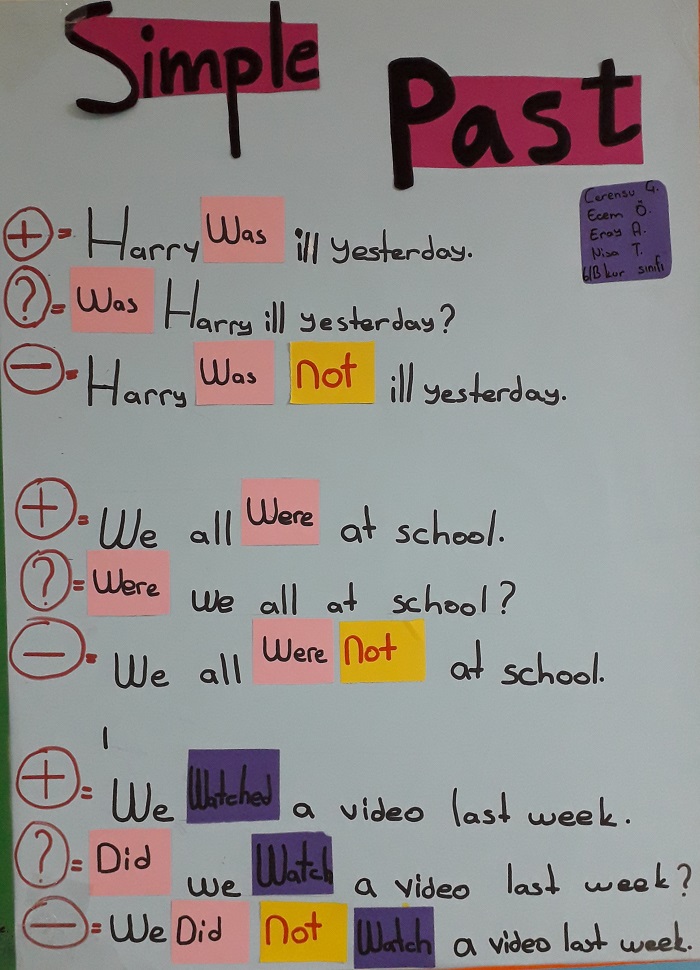 Simple
Past
Cerensu G.
Ecem Ö.
Eray A.
Nisa T.
6/B kur sınıfı
+ = Harry Was ill yesterday.
? = Was Harry ill yesterday?
− = Harry Was not ill yesterday.
+ = We all Were at school.
? = Were we all at school?
− = We all Were not at school.
+ = We Watched a video last week.
? = Did we Watch a video last week?
− = We Did not Watch a video last week.